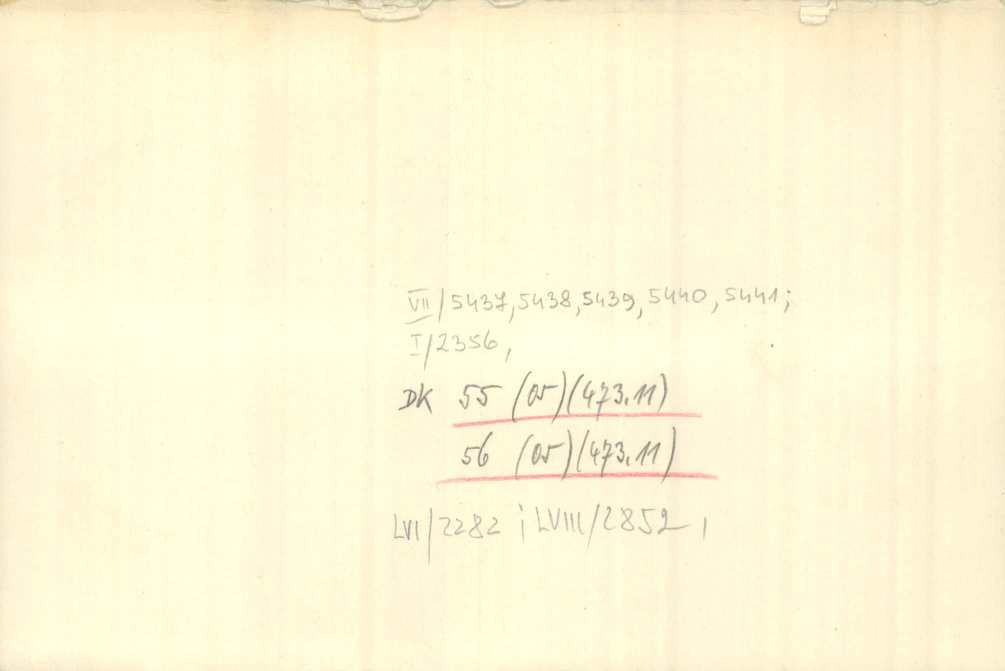 VII/5437, 5438, 5439, 5440, 5441;
I/2356,
DK 55 (05)(473.11)
56 (05)(473.11)
LVI/2282 ; LVIII/2852,